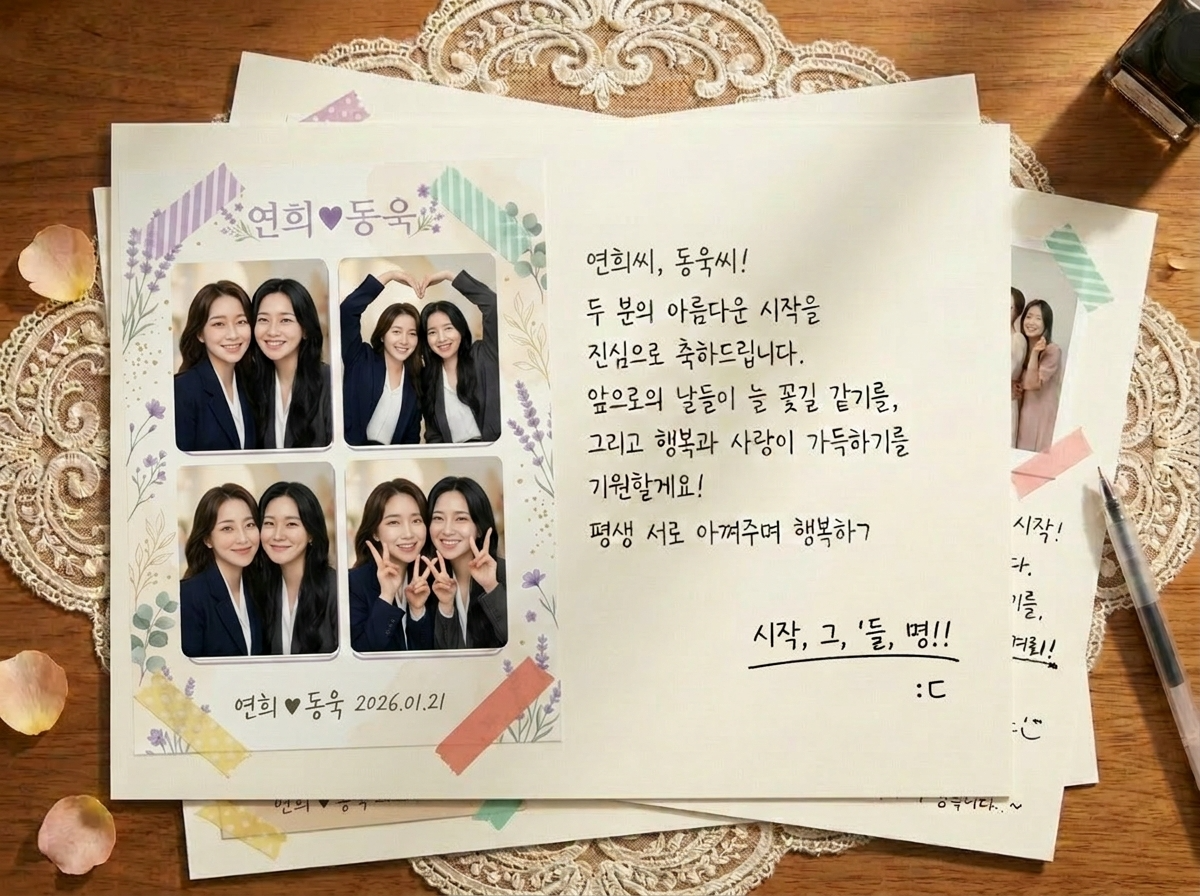 연희♥동욱
연희♥동욱 2026.01.21
연희씨, 동욱씨!
두 분의 아름다운 시작을
진심으로 축하드립니다.
앞으로의 날들이 늘 꽃길 같기를,
그리고 행복과 사랑이 가득하기를
기원할게요!
평생 서로 아껴주며 행복하ㄱ
시작, 그, '들, 명!!
:ㄷ
시작!
다.
기를,